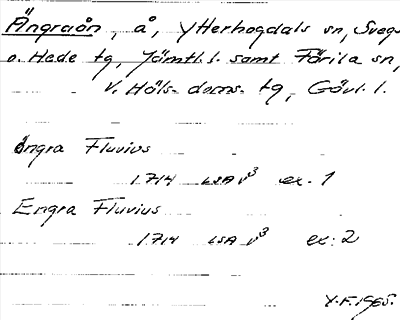 Ängraån, å, Ytterhogdals sn, Svegs
o. Hede tg, Jämtl. l. samt Färila sn,
V. Häls. doms. tg, Gävl. l.
Ängra Fluvius
1714 LSA V3 ex. 1
Engra Fluvius
1714 LSA V3 ex: 2
Y.F. 1965.